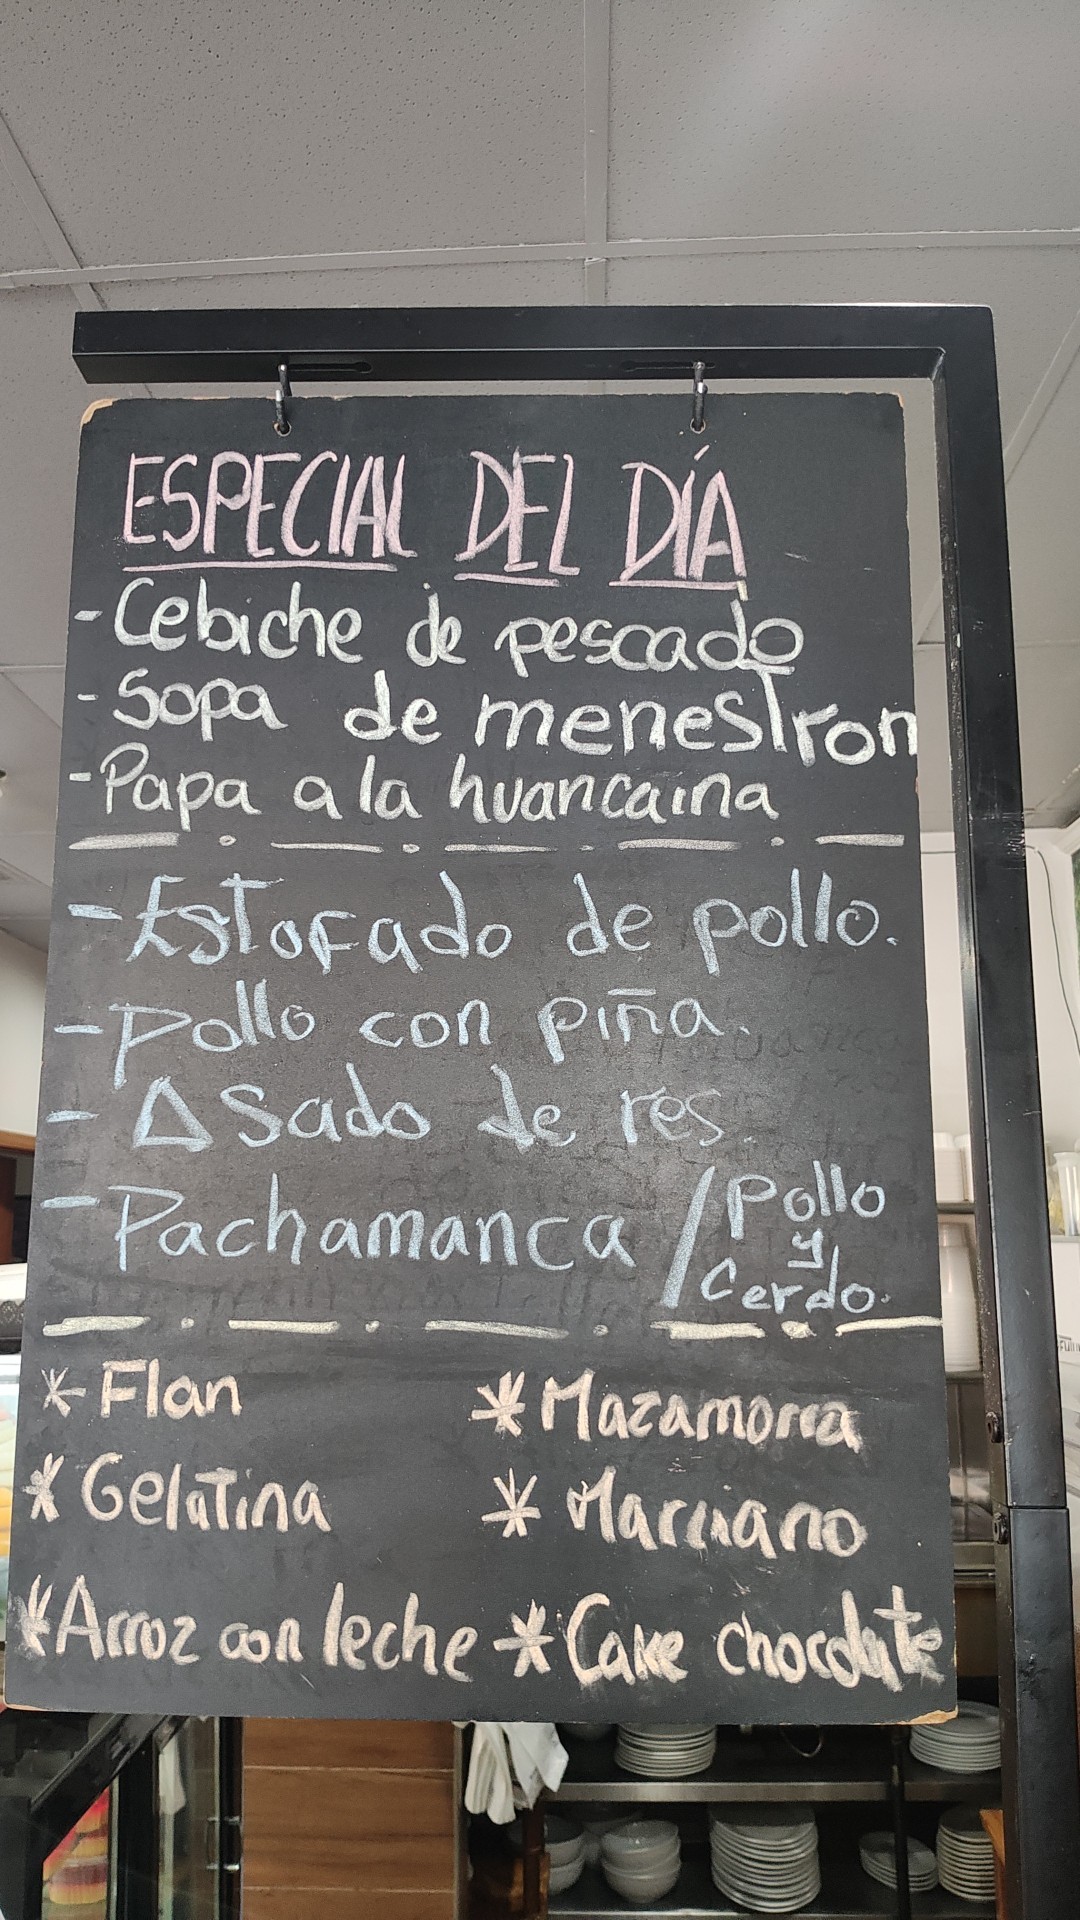 ESPECIAL DEL DÍA
- Cebiche de pescado
- Sopa de menestron
- Papa a la huancaina
- Estofado de pollo.
- Pollo con piña.
- Asado de res.
- Pachamanca / Pollo
y
Cerdo.
* Flan * Mazamorra
* Gelatina * Marciano
* Arroz con leche * Cake chocolate